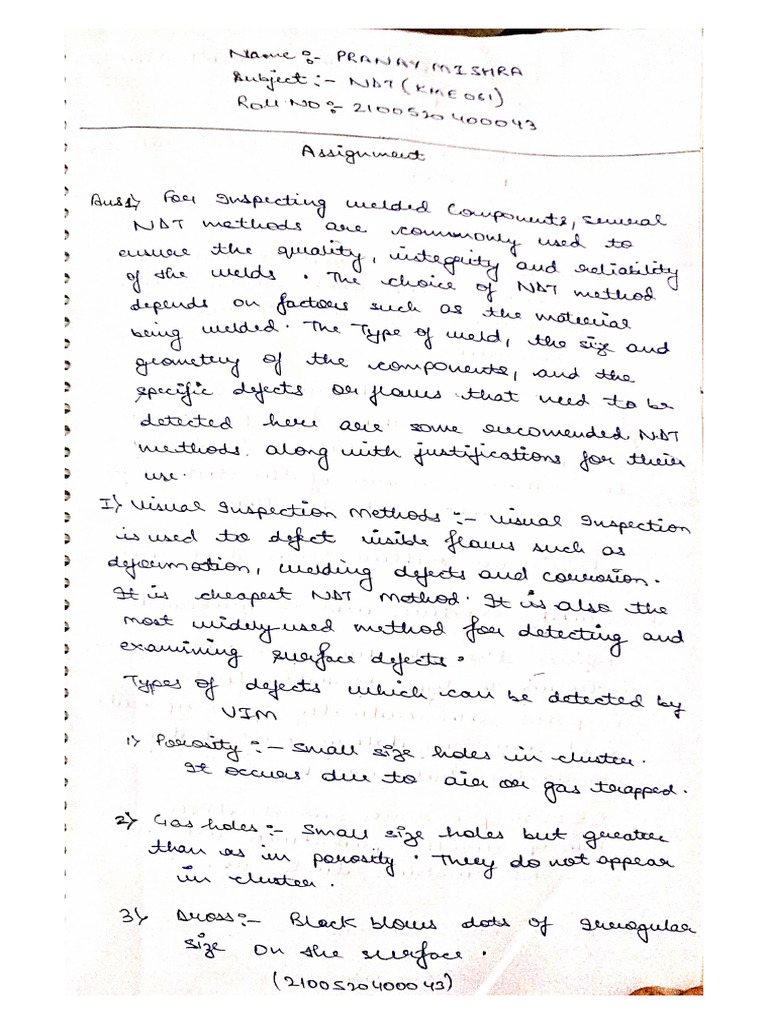 Name :- PRANAY MISHRA
Subject :- NDT (KME061)
Roll NO :- 2100520400043
Assignment
Ans1) For Inspecting welded Components, several
NDT methods are commonly used to
ensure the quality, integrity and reliability
of the welds. The choice of NDT method
depends on factors such as the material
being welded. The Type of weld, the size and
geometry of the components, and the
specific defects or flaws that need to be
detected here are some recomended NDT
methods along with justifications for their
use.
I) Visual Inspection Methods :- Visual Inspection
is used to defect visible flaws such as
deformation, welding defects and corrosion.
It is cheapest NDT method. It is also the
most widely used method for detecting and
examining surface defects.
Types of defects which can be detected by
VIM
1) Porosity :- Small size holes in cluster.
It occurs due to air or gas trapped.
2) Gas holes :- Small size holes but greater
than as in porosity. They do not appear
in cluster.
3) Dross :- Black blows dots of Irregular
size on the surface.
(2100520400043)